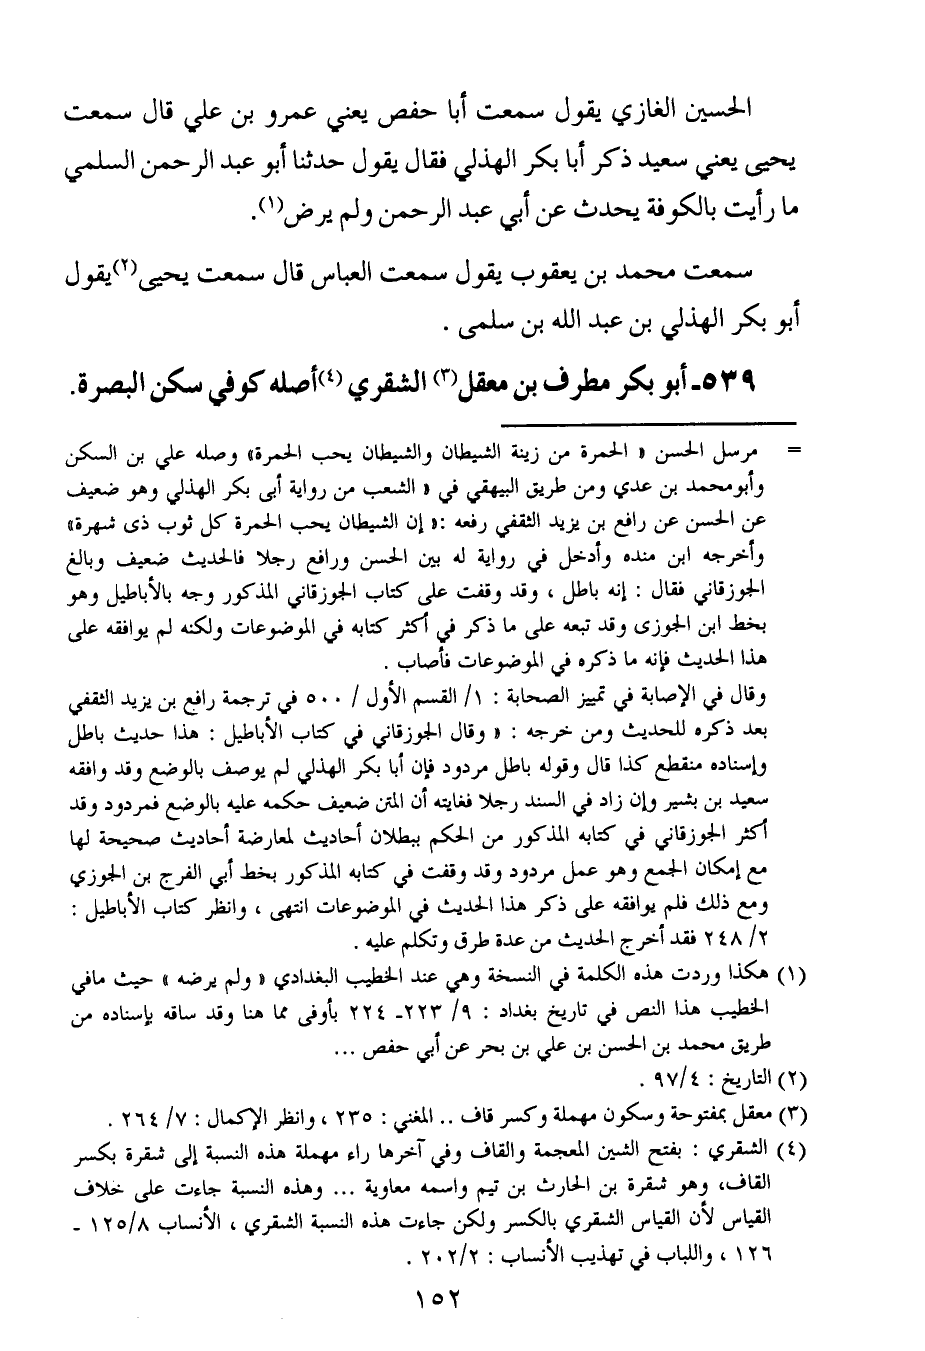 الحسين الغازي يقول سمعت أبا حفص يعني عمرو بن علي قال سمعت
يحيى يعني سعيد ذكر أبا بكر الهذلي فقال يقول حدثنا أبو عبد الرحمن السلمي
ما رأيت بالكوفة يحدث عن أبي عبد الرحمن ولم يرض(١).
سمعت محمد بن يعقوب يقول سمعت العباس قال سمعت يحيى(٢)يقول
أبو بكر الهذلي بن عبد الله بن سلمى .
٥٣٩ـ أبو بكر مطرف بن معقل(٣) الشقري (٤)أصله كوفي سكن البصرة.
= مرسل الحسن « الحمرة من زينة الشيطان والشيطان يحب الحمرة» وصله علي بن السكن
وأبومحمد بن عدي ومن طريق البيهقي في « الشعب من رواية أبى بكر الهذلي وهو ضعيف
عن الحسن عن رافع بن يزيد الثقفي رفعه :« إن الشيطان يحب الحمرة كل ثوب ذى شهرة»
وأخرجه ابن منده وأدخل في رواية له بين الحسن ورافع رجلا فالحديث ضعيف وبالغ
الجوزقاني فقال : إنه باطل ، وقد وقفت على كتاب الجوزقاني المذكور وجه بالأباطيل وهو
بخط ابن الجوزى وقد تبعه على ما ذكر في أكثر كتابه في الموضوعات ولكنه لم يوافقه على
هذا الحديث فإنه ما ذكره في الموضوعات فأصاب .
وقال في الإصابة في تمييز الصحابة : ١/ القسم الأول / ٥٠٠ في ترجمة رافع بن يزيد الثقفي
بعد ذكره للحديث ومن خرجه : « وقال الجوزقاني في كتاب الأباطيل : هذا حديث باطل
وإسناده منقطع كذا قال وقوله باطل مردود فإن أبا بكر الهذلي لم يوصف بالوضع وقد وافقه
سعيد بن بشير وإن زاد في السند رجلا فغايته أن المتن ضعيف حكمه عليه بالوضع فمردود وقد
أكثر الجوزقاني في كتابه المذكور من الحكم ببطلان أحاديث لمعارضة أحاديث صحيحة لها
مع إمكان الجمع وهو عمل مردود وقد وقفت في كتابه المذكور بخط أبي الفرج بن الجوزي
ومع ذلك فلم يوافقه على ذكر هذا الحديث في الموضوعات انتهى ، وانظر كتاب الأباطيل :
٢/ ٢٤٨ فقد أخرج الحديث من عدة طرق وتكلم عليه .
(١) هكذا وردت هذه الكلمة في النسخة وهي عند الخطيب البغدادي « ولم يرضه » حيث مافي
الخطيب هذا النص في تاريخ بغداد : ٩/ ٢٢٣ـ ٢٢٤ بأوفى مما هنا وقد ساقه بإسناده من
طريق محمد بن الحسن بن علي بن بحر عن أبي حفص ...
(٢) التاريخ : ٩٧/٤ .
(٣) معقل بمفتوحة وسكون مهملة وكسر قاف .. المغني : ٢٣٥ ، وانظر الإكمال : ٧/ ٢٦٤ .
(٤) الشقري : بفتح الشين المعجمة والقاف وفي آخرها راء مهملة هذه النسبة إلى شقرة بكسر
القاف، وهو شقرة بن الحارث بن تيم واسمه معاوية ... وهذه النسبة جاءت على خلاف
القياس لأن القياس الشقري بالكسر ولكن جاءت هذه النسبة الشقري ، الأنساب ١٢٥/٨ ـ
١٢٦ ، واللباب في تهذيب الأنساب : ٢٠٢/٢ .
١٥٢